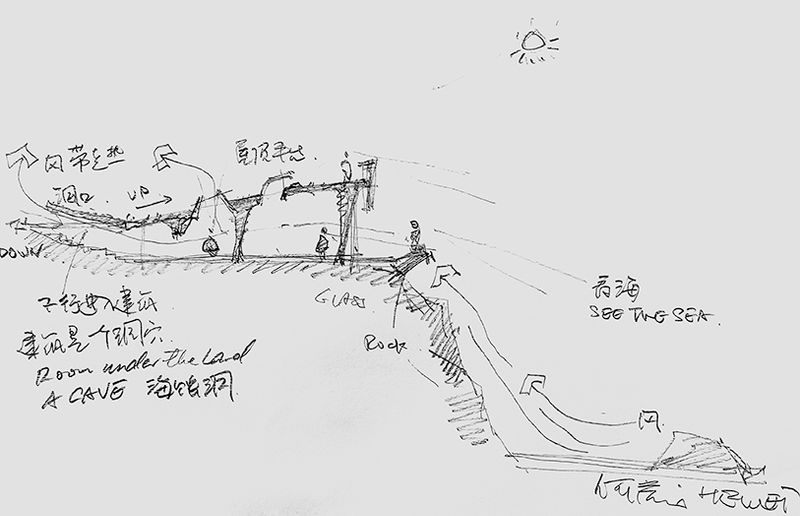 风带走热
屋顶平台
洞口
UP
DOWN
下行进入建筑
GLASS
看海
SEE THE SEA
建筑是个洞穴
ROCK
Room under the Land
A CAVE 海蚀洞
风
HEWEI